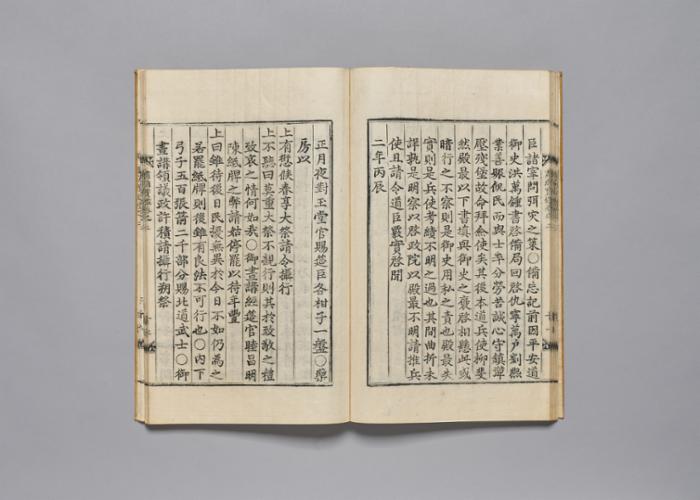 臣諸宰問弭灾之策○備忘記前因平安道
御史洪萬鍾書啓備局回啓仇寧萬戶劉熙
業善賑飢民而與士卒分勞苦誠心守鎭譚
壓殘堡故命拜僉使矣其後本道兵使柳斐
然殿最以下書塡與御史之褒啓相懸此或
暗行之不察則是御史用私之責也殿最失
實則是兵使考績不明之過也其間曲折未
詳孰是明察以啓政院以殿最不明請推兵
使且請令道臣覈實啓聞
二年丙辰
正月夜對玉堂官賜筵臣各柑子一盤○藥
房以
上有愆候春享大祭請令攝行
上不聽曰莫重大祭不親行則其於致敬之禮
致哀之情何如我○御晝講經筵官睦昌明
陳紙牌之弊請姑停罷以待年豐
上曰雖待後日民擾無異於今日不如仍爲之
若罷紙牌則後雖有良法不可行也○內下
弓子五百張箭二千部分賜北道武士○御
晝講領議政許積請攝行朔祭